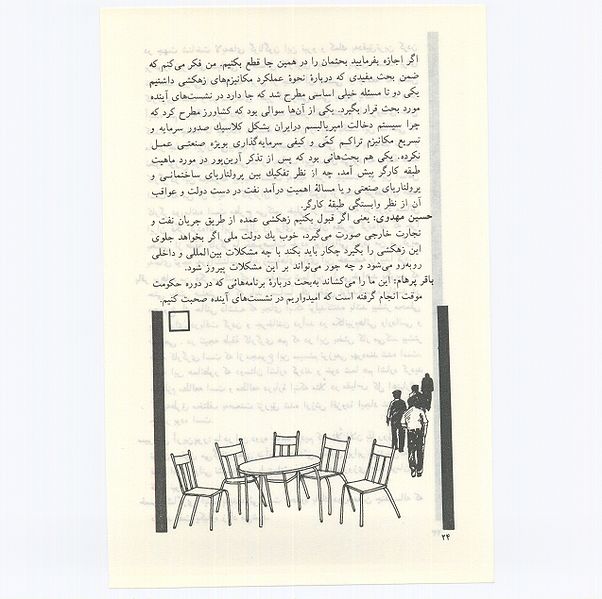 اگر اجازه بفرمایید بحثمان را در همین جا قطع بکنیم. من فکر می‌کنم که
ضمن بحث مفیدی که دربارهٔ نحوهٔ عملکرد مکانیزم‌های زهکشی داشتیم
یکی دو تا مسئله خیلی اساسی مطرح شد که جا دارد در نشست‌های آینده
مورد بحث قرار بگیرد. یکی از آن‌ها سوالی بود که کشاورز مطرح کرد که
چرا سیستم دخالت امپریالیسم درایران بشکل کلاسیك صدور سرمایه و
تسریع مکانیزم تراکم کمّی و کیفی سرمایه‌گذاری بویژه صنعتی عمل
نکرده. یکی هم بحث‌هائی بود که پس از تذکر آرین‌پور در مورد ماهیت
طبقه کارگر پیش آمد، چه از نظر تفکیك بین پرولتاریای ساختمانی و
پرولتاریای صنعتی و یا مسالهٔ اهمیت درآمد نفت در دست دولت و عواقب
آن از نظر وابستگی طبقهٔ کارگر.
حسین مهدوی: یعنی اگر قبول بکنیم زهکشی عمده از طریق جریان نفت و
تجارت خارجی صورت می‌گیرد، خوب یك دولت ملی اگر بخواهد جلوی
این زهکشی را بگیرد چکار باید بکند با چه مشکلات بین‌المللی و داخلی
روبه‌رو می‌شود و چه جور می‌تواند بر این مشکلات پیروز شود.
باقر پرهام: این ما را می‌کشاند به‌بحث دربارهٔ برنامه‌هائی که در دوره حکومت
موقت انجام گرفته است که امیدواریم در نشست‌های آینده صحبت کنیم.
۲۴